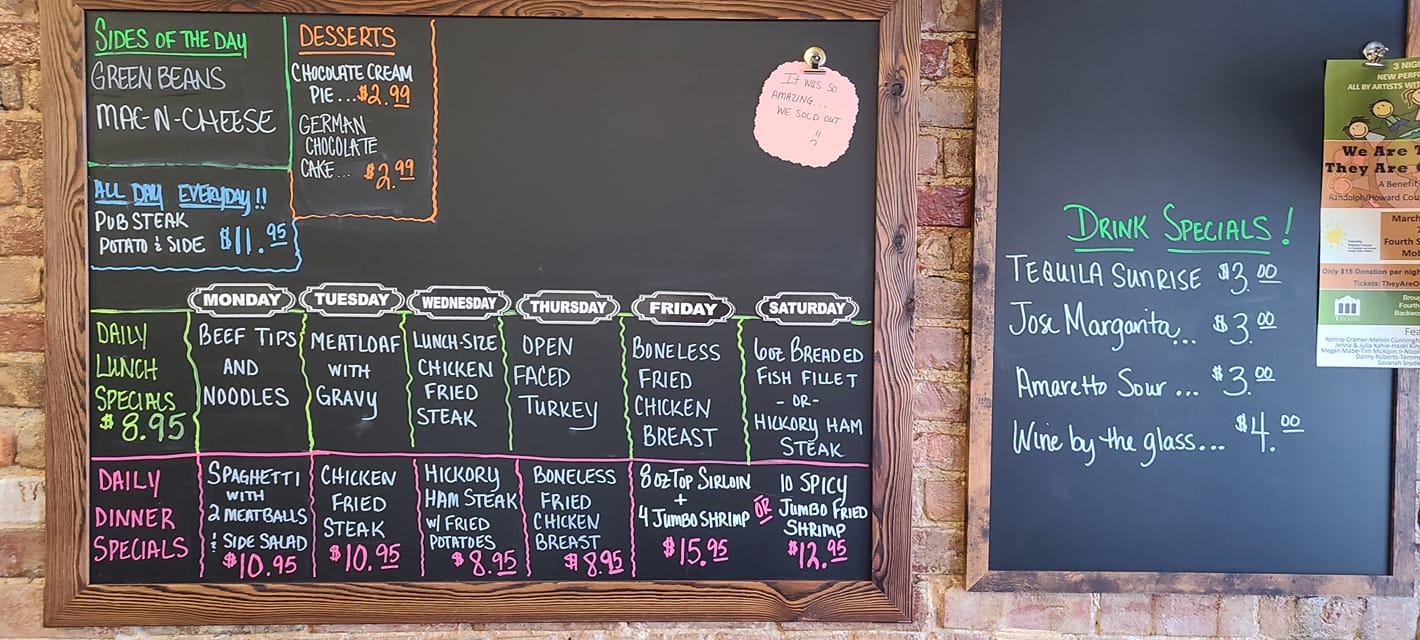 SIDES OF THE DAY
GREEN BEANS
MAC-N-CHEESE
DESSERTS
CHOCOLATE CREAM
PIE...$2.99
GERMAN
CHOCOLATE
CAKE... $2.99
ALL DAY EVERYDAY!!
PUB STEAK
POTATO & SIDE $11.95
IT WAS SO
AMAZING...
WE SOLD OUT
!!
MONDAY
TUESDAY
WEDNESDAY
THURSDAY
FRIDAY
SATURDAY
DAILY
LUNCH
SPECIALS
$8.95
BEEF TIPS
AND
NOODLES
MEATLOAF
WITH
GRAVY
LUNCH-SIZE
CHICKEN
FRIED
STEAK
OPEN
FACED
TURKEY
BONELESS
FRIED
CHICKEN
BREAST
6OZ BREADED
FISH FILLET
-OR-
HICKORY HAM
STEAK
DAILY
DINNER
SPECIALS
SPAGHETTI
WITH
2 MEATBALLS
& SIDE SALAD
$10.95
CHICKEN
FRIED
STEAK
$10.95
HICKORY
HAM STEAK
W/ FRIED
POTATOES
$8.95
BONELESS
FRIED
CHICKEN
BREAST
$8.95
8OZ TOP SIRLOIN
+
4 JUMBO SHRIMP
$15.95
OR
10 SPICY
JUMBO FRIED
SHRIMP
$12.95
DRINK SPECIALS!
TEQUILA SUNRISE $3.00
Jose Margarita... $3.00
Amaretto Sour... $3.00
Wine by the glass... $4.00
3 NIG
NEW PERF
ALL BY ARTISTS WIT
We Are T
They Are
A Benefit
Randolph/Howard Cou
March
Fourth S
Mob
Only $15 Donation per nigh
Tickets: TheyAreO
Brou
Fourth
Backwo
Fea